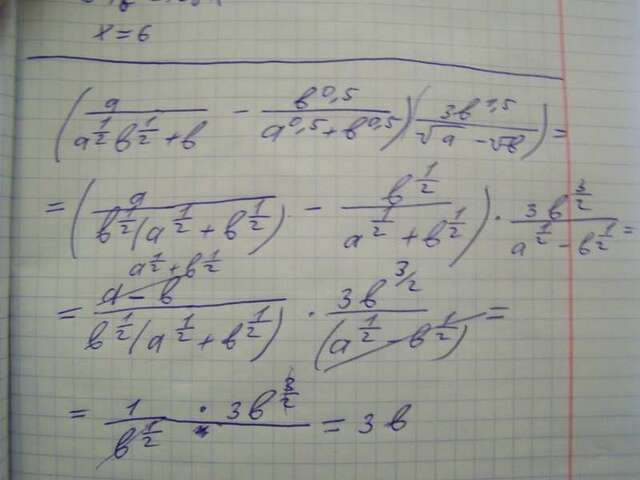 x = 6
(a / (a^(1/2) b^(1/2) + b) − b^(0,5) / (a^(0,5) + b^(0,5))) (3b^(1,5) / (√a − √b)) =
= (a / (b^(1/2) (a^(1/2) + b^(1/2))) − b^(1/2) / (a^(1/2) + b^(1/2))) · 3b^(3/2) / (a^(1/2) − b^(1/2)) =
a^(1/2) + b^(1/2)
= (a − b) / (b^(1/2) (a^(1/2) + b^(1/2))) · 3b^(3/2) / (a^(1/2) − b^(1/2)) =
= 1 / b^(1/2) · 3b^(3/2) = 3b